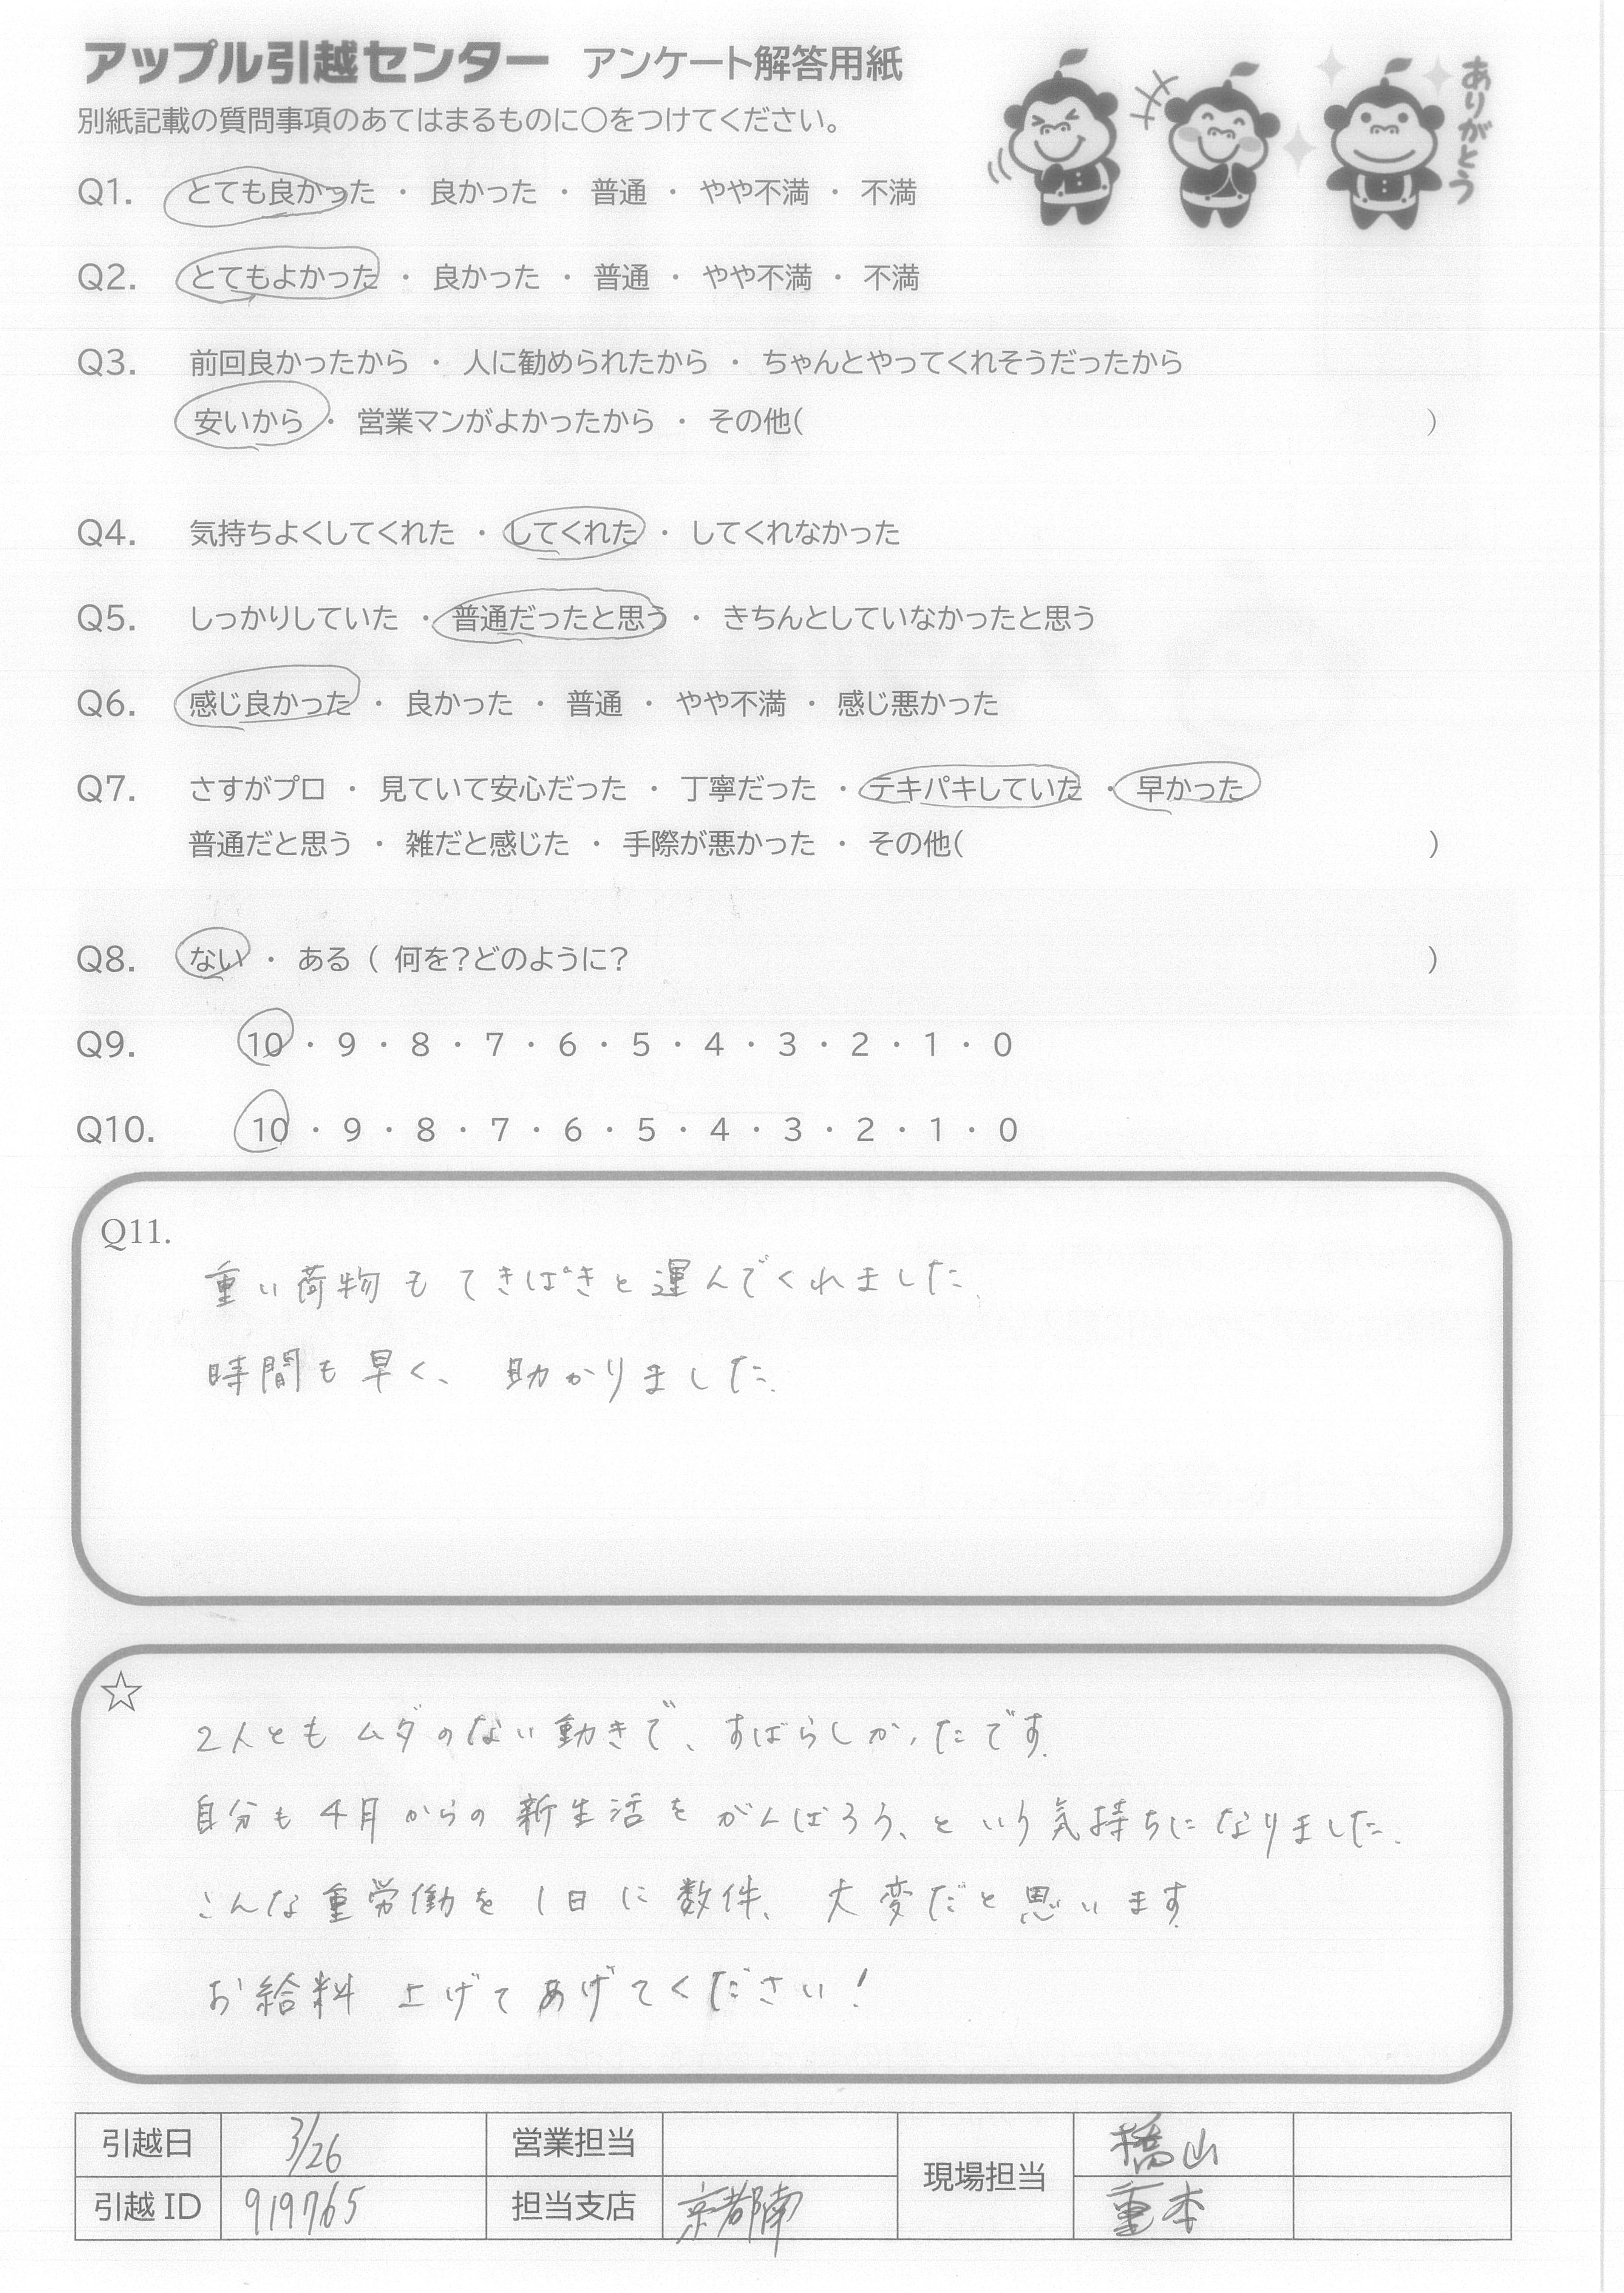 アップル引越センター アンケート解答用紙
ありがとう
別紙記載の質問事項のあてはまるものに〇をつけてください。
Q1. とても良かった ・ 良かった ・ 普通 ・ やや不満 ・ 不満
Q2. とてもよかった ・ 良かった ・ 普通 ・ やや不満 ・ 不満
Q3. 前回良かったから ・ 人に勧められたから ・ ちゃんとやってくれそうだったから
安いから ・ 営業マンがよかったから ・ その他( )
Q4. 気持ちよくしてくれた ・ してくれた ・ してくれなかった
Q5. しっかりしていた ・ 普通だったと思う ・ きちんとしていなかったと思う
Q6. 感じ良かった ・ 良かった ・ 普通 ・ やや不満 ・ 感じ悪かった
Q7. さすがプロ ・ 見ていて安心だった ・ 丁寧だった ・ テキパキしていた ・ 早かった
普通だと思う ・ 雑だと感じた ・ 手際が悪かった ・ その他( )
Q8. ない ・ ある ( 何を?どのように? )
Q9. 10 ・ 9 ・ 8 ・ 7 ・ 6 ・ 5 ・ 4 ・ 3 ・ 2 ・ 1 ・ 0
Q10. 10 ・ 9 ・ 8 ・ 7 ・ 6 ・ 5 ・ 4 ・ 3 ・ 2 ・ 1 ・ 0
Q11.
重い荷物もてきぱきと運んでくれました.
時間も早く、助かりました.
☆
2人ともムダのない動きで、すばらしかったです.
自分も4月からの新生活をがんばろう、という気持ちになりました.
こんな重労働を1日に数件、大変だと思います.
お給料 上げてあげてください!
引越日 3/26 営業担当 現場担当 橋山
引越ID 919765 担当支店 京都南 重本